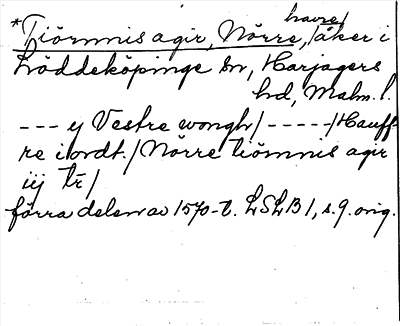 *Tiörnnis agir, Nörre, havre/åker i
Löddeköpinge sn, Harjagers
hd, Malm. l.
--- y Vestre wongh/-----/Hauff-
re i ordt./Nörre tiömnis agir
iij tr/
förra delen av 1570-t. LSLB1, s. 9. orig.